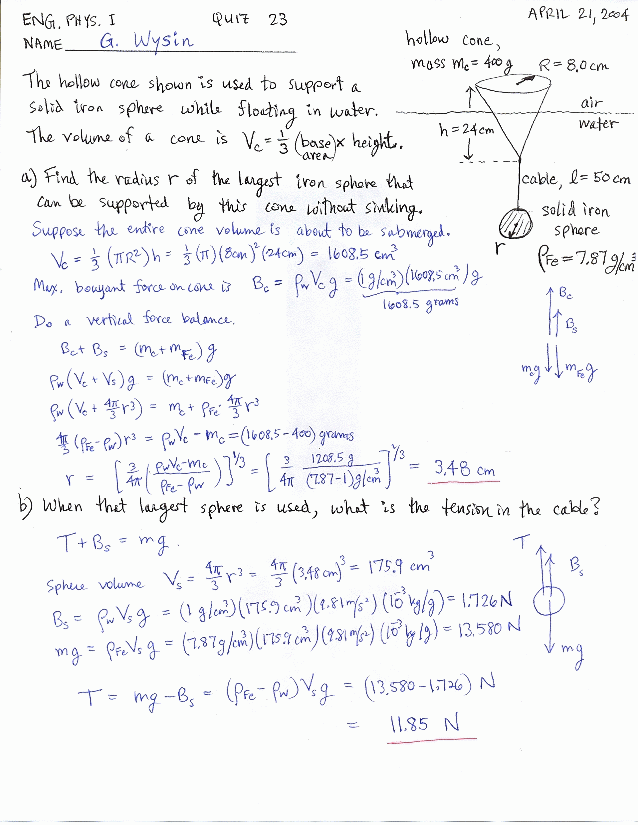 ENG. PHYS. I QUIZ 23 APRIL 21, 2004
NAME G. Wysin
hollow cone,
mass mc = 400g R = 8.0cm
The hollow cone shown is used to support a
solid iron sphere while floating in water.
The volume of a cone is Vc = 1/3 (base area) x height.
air
water
h = 24cm
cable, l = 50cm
solid iron
sphere
r
ρFe = 7.87 g/cm³
a) Find the radius r of the largest iron sphere that
can be supported by this cone without sinking.
Suppose the entire cone volume is about to be submerged.
Vc = 1/3 (πR²)h = 1/3 (π)(8cm)²(24cm) = 1608.5 cm³
Max. bouyant force on cone is Bc = ρw Vc g = (1 g/cm³)(1608.5 cm³) g
1608.5 grams
Do a vertical force balance.
Bc
Bs
mcg mFe g
Bc + Bs = (mc + mFe) g
ρw (Vc + Vs) g = (mc + mFe) g
ρw (Vc + 4π/3 r³) = mc + ρFe · 4π/3 r³
4π/3 (ρFe - ρw) r³ = ρwVc - mc = (1608.5 - 400) grams
r = [3/4π (ρwVc - mc / ρFe - ρw)]^1/3 = [3/4π 1208.5 g / (7.87-1) g/cm³]^1/3 = 3.48 cm
b) When that largest sphere is used, what is the tension in the cable?
T + Bs = mg.
T
Bs
mg
Sphere volume Vs = 4π/3 r³ = 4π/3 (3.48 cm)³ = 175.9 cm³
Bs = ρw Vs g = (1 g/cm³)(175.9 cm³)(9.81 m/s²)(10⁻³ kg/g) = 1.726 N
mg = ρFe Vs g = (7.87 g/cm³)(175.9 cm³)(9.81 m/s²)(10⁻³ kg/g) = 13.580 N
T = mg - Bs = (ρFe - ρw) Vs g = (13.580 - 1.726) N
= 11.85 N